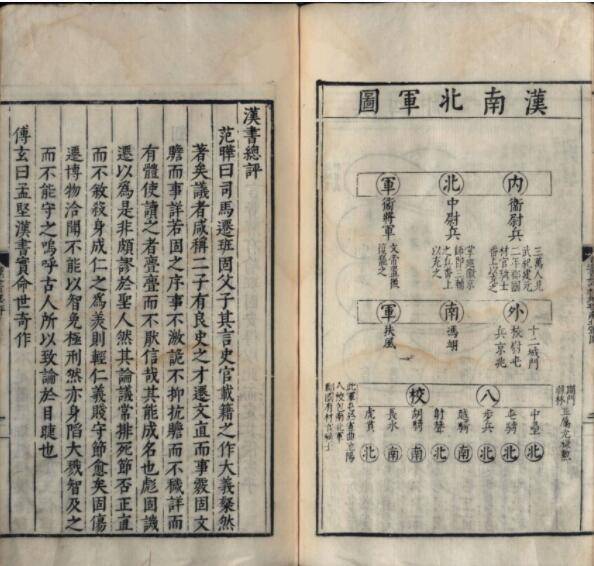 漢南北軍圖
內北軍
衛尉兵
中尉兵
衛將軍
外南軍
校尉屯兵
京兆
馮翊
扶風
十二城門
八校
中壘
屯騎
步兵
越騎
射聲
胡騎
長水
虎賁
北
北
北
南
北
南
南
北
漢書總評
范曄曰司馬遷班固父子其言史官載籍之作大義粲然
著矣議者咸稱二子有良史之才遷文直而事覈固文
贍而事詳若固之序事不激詭不抑抗贍而不穢詳而
有體使讀之者亹亹而不厭信哉其能成名也彪固譏
遷以為是非頗謬於聖人然其論議常排死節否正直
而不敘殺身成仁之為美則輕仁義賤守節愈矣固傷
遷博物洽聞不能以智免極刑然亦身陷大戮智及之
而不能守之嗚呼古人所以致論於目睫也
傅玄曰孟堅漢書實命世奇作